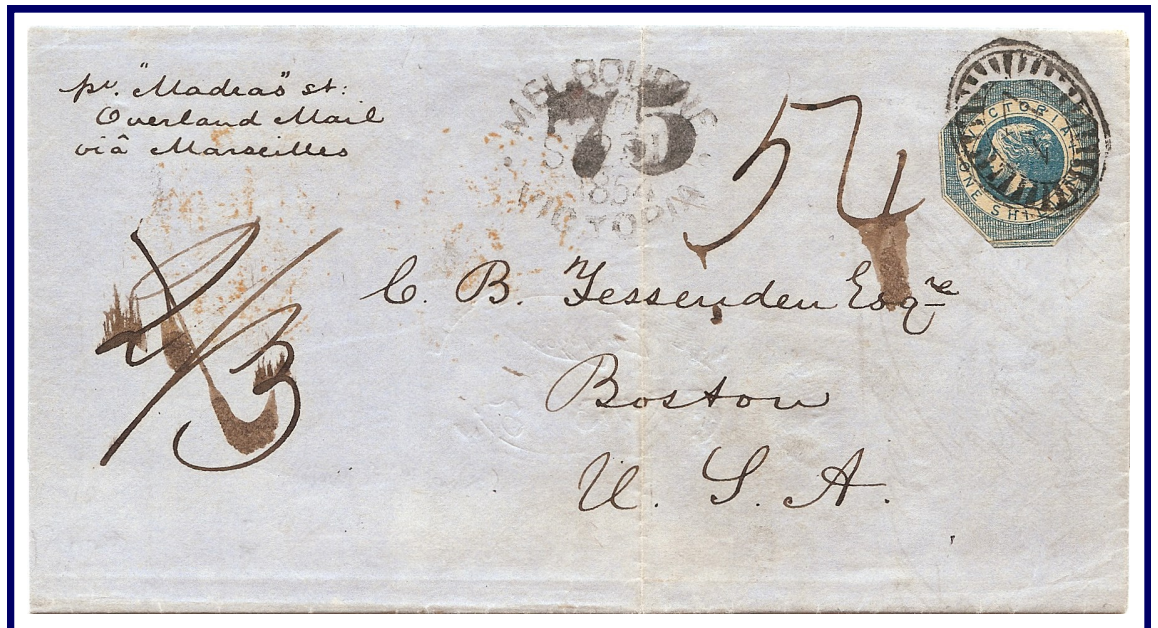 pr. "Madras" st:
Overland Mail
viâ Marseilles
MELBOURNE
75
1854
VICTORIA
54
VICTORIA
ONE SHILLING
2/3
C. B. Fessenden Esqre
Boston
U. S. A.